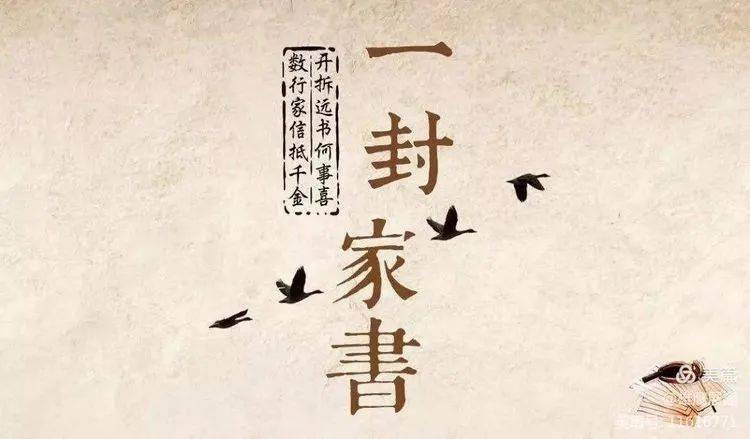 一封家書
开拆远书何事喜
数行家信抵千金
美篇
11616771